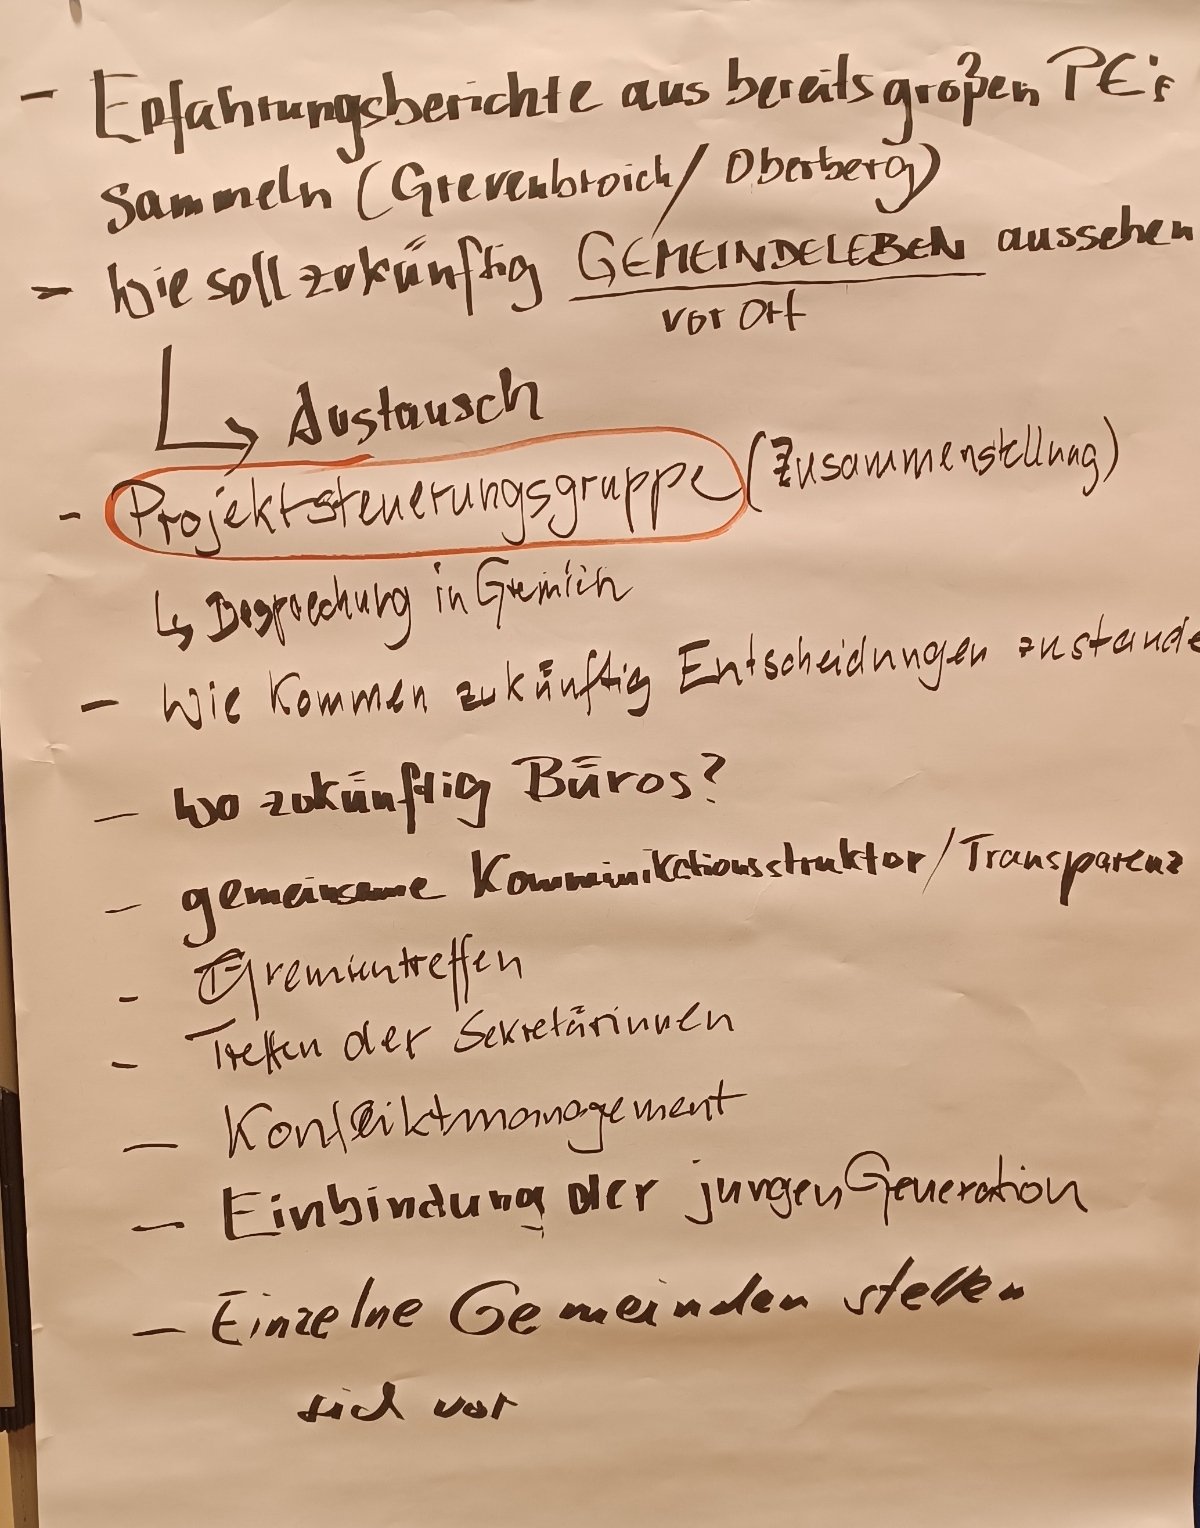 - Erfahrungsberichte aus bereits großen PE's
sammeln (Grevenbroich/Oberberg)
- Wie soll zukünftig GEMEINDELEBEN aussehen
vor Ort
↳ Austausch
- Projektsteuerungsgruppe (Zusammenstellung)
↳ Besprechung in Gremien
- Wie kommen zukünftig Entscheidungen zustande
- Wo zukünftig Büros?
- gemeinsame Kommunikationsstruktur/Transparenz
- Gremientreffen
- Treffen der Sekretärinnen
- Konfliktmanagement
- Einbindung der jungen Generation
- Einzelne Gemeinden stellen
sich vor